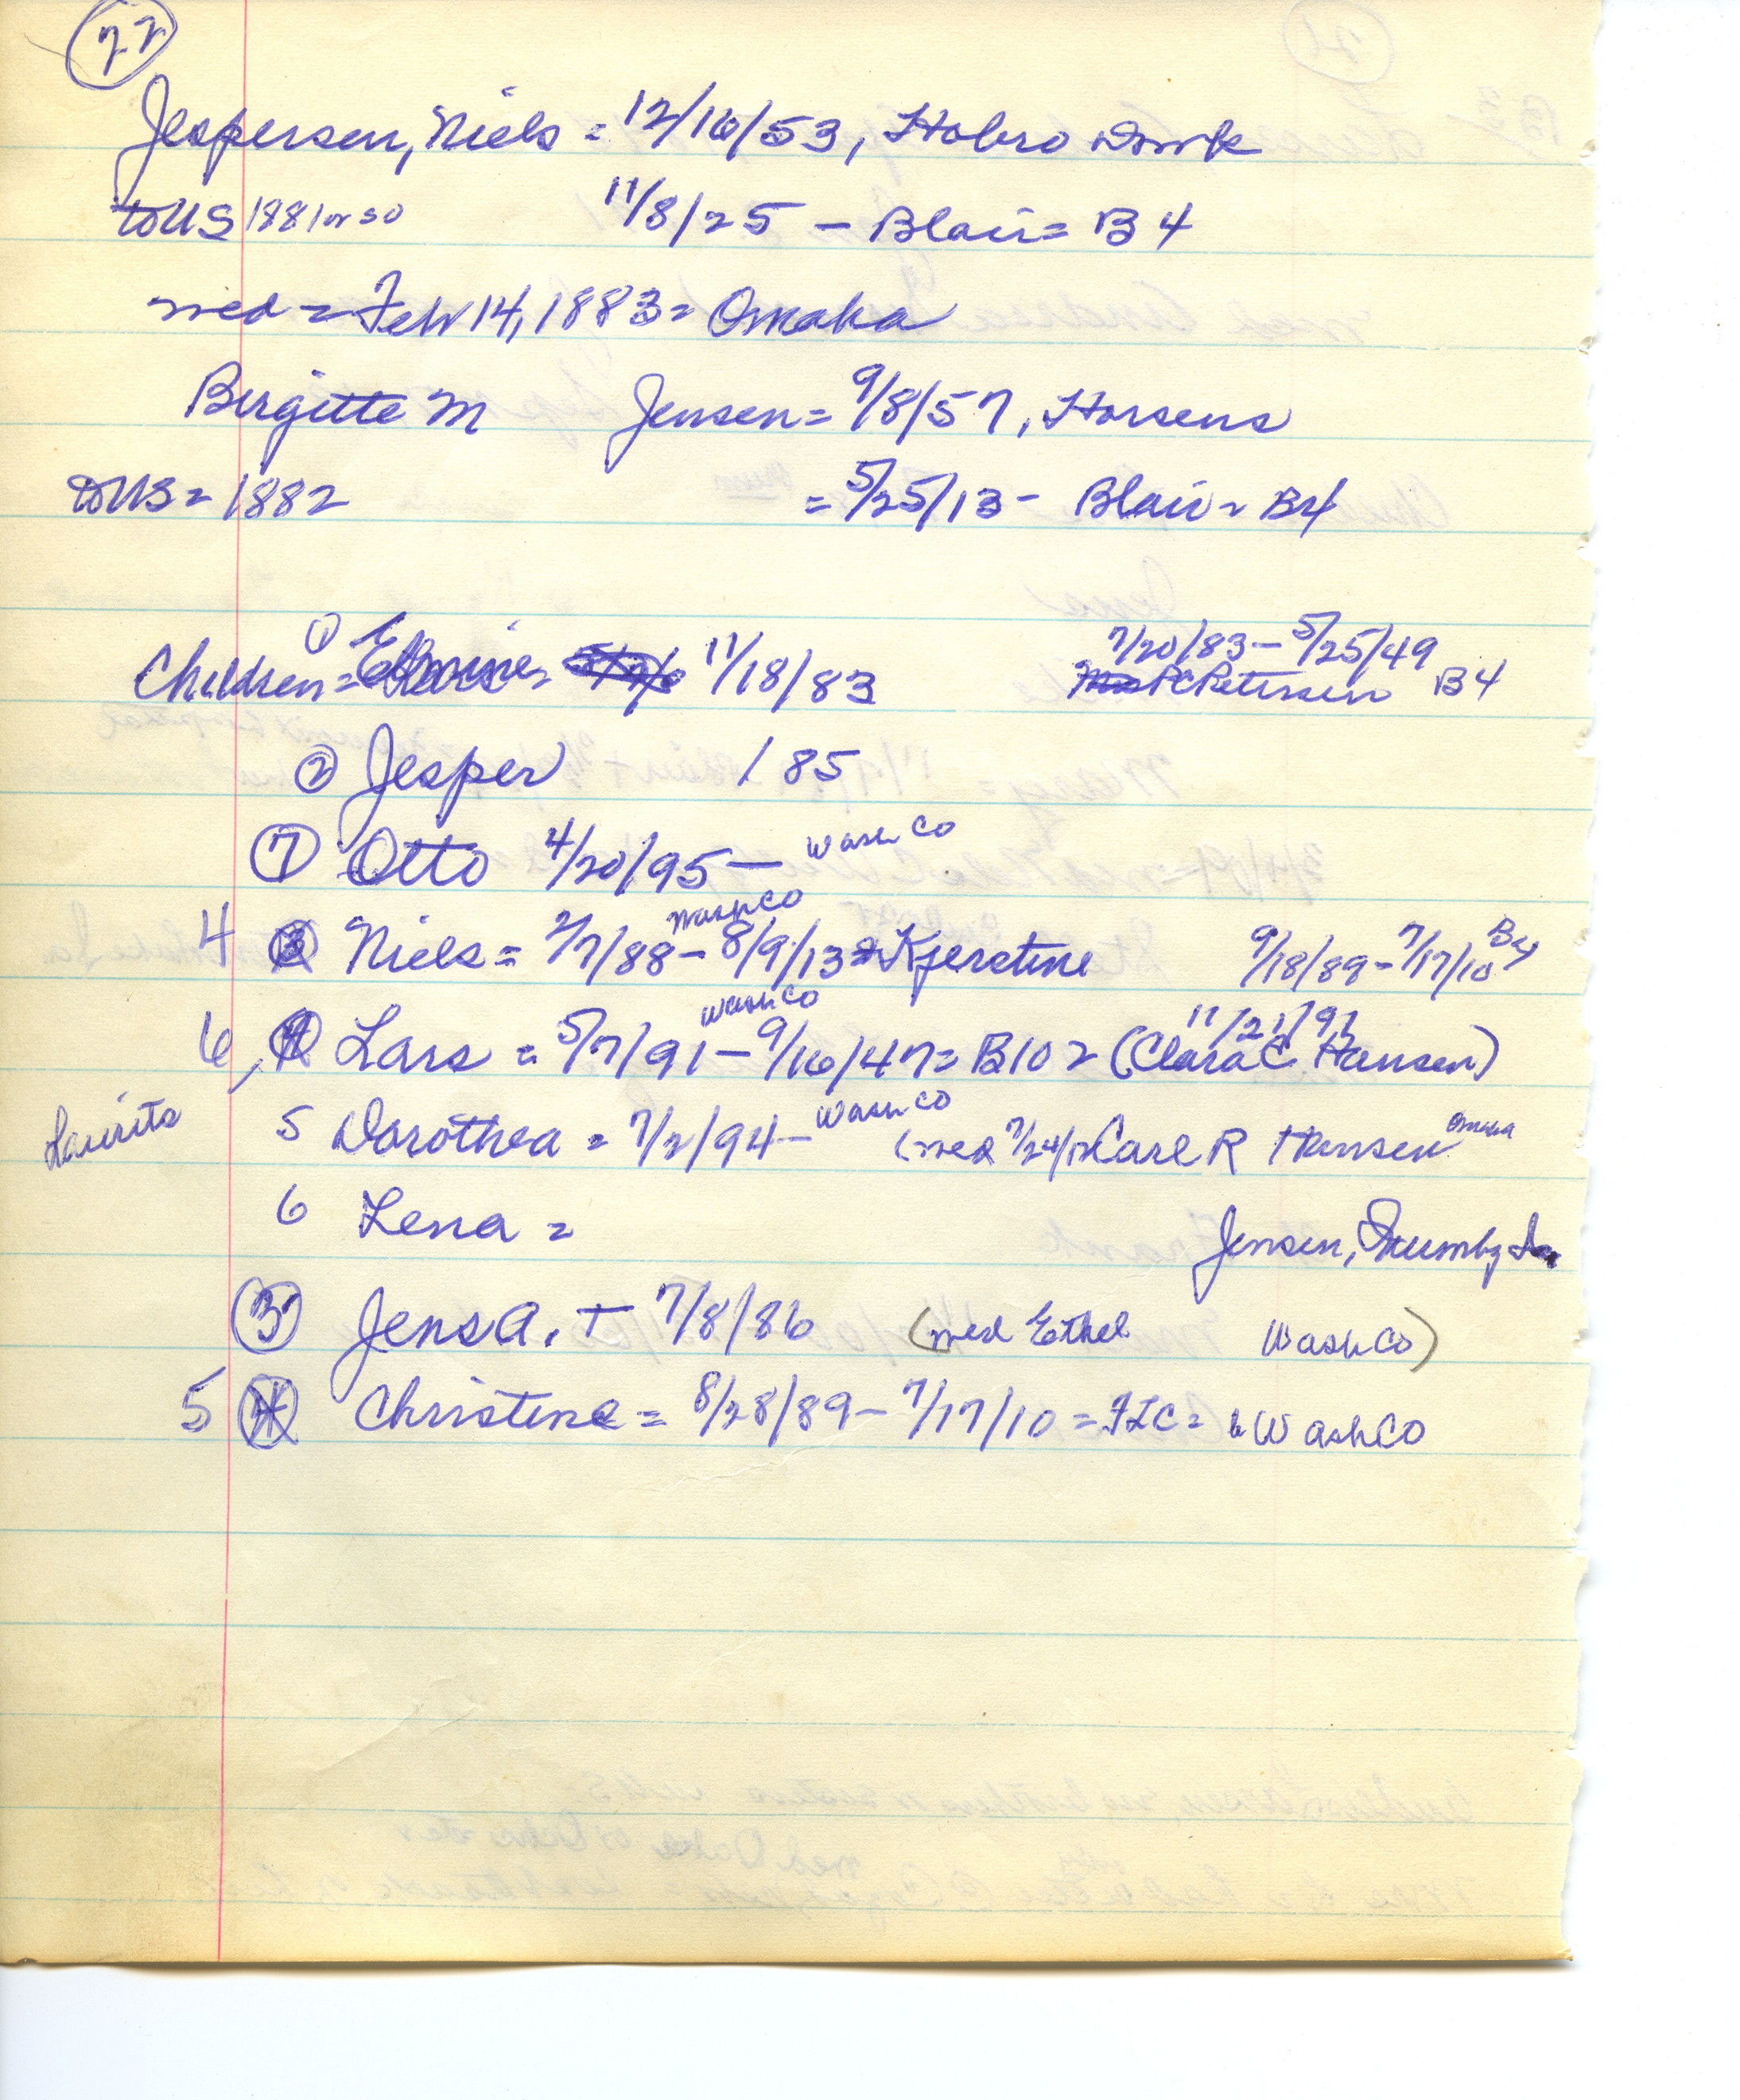 22
Jespersen, Niels = 12/16/53, Hobro Dmrk
to US 1881 or so 11/8/25 - Blair = B 4
med = Feb 14, 1883 = Omaha
Birgitte M Jensen = 9/8/57, Horsens
to US = 1882 = 5/25/13 - Blair = B4
7/20/83 - 5/25/49
Children = ① 11/18/83 PC Petersen B4
② Jesper / 85
⑦ Otto 4/20/95 — Wash Co
4 Niels = 2/7/88 - Wash Co 8/9/13 = Kjerstine 9/18/89 - 7/17/10 B4
6, Lars = 5/7/91 - Wash Co 9/16/47 = B102 (Clara C Hansen) 11/21/91
Laurits 5 Dorothea = 7/2/94 - Wash Co (med 7/24/ Carl R Hansen Omaha
6 Lena = Jensen,
③ Jens A. + 7/8/86 (med Ethel Wash Co)
5 Christine = 8/28/89 - 7/17/10 = FLC = b Wash Co